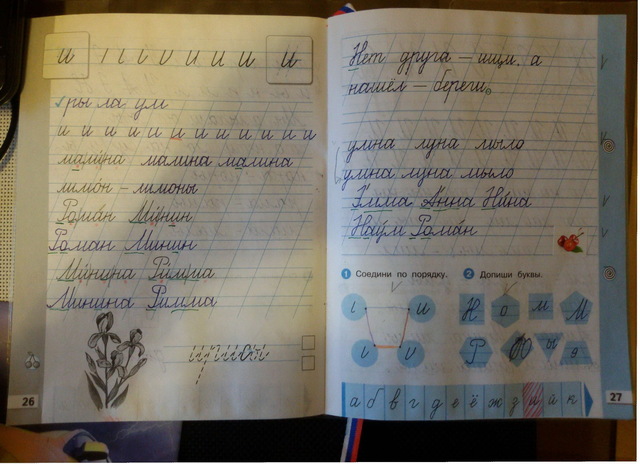 и и и и и и и и
ры ла ум
и и и и и и и и и и и и и
мали́на малина малина
лимо́н – лимоны
Рома́н Ми́нин
Роман Минин
Ми́нина Ри́мма
Минина Римма
26
Нет друга – ищи, а
нашёл – береги.
улица луна мыло
улица луна мыло
Ри́мма А́нна Ни́на
Нау́м Рома́н
1 Соедини по порядку.
2 Допиши буквы.
и
Н о м М
Р Ю ы я
а б в г д е ё ж з и й к
27